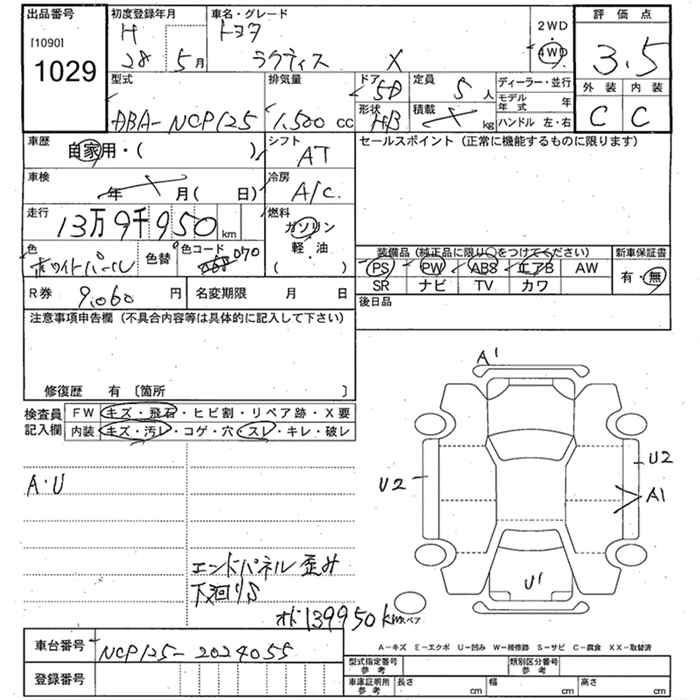 出品番号
[1090]
1029
初度登録年月
H
28 5月
車名・グレード
トヨタ
ラクティス X
2WD
・
4WD
評価点
3.5
外装 内装
C C
型式
DBA-NCP125
排気量
1.500 cc
ドア
5D
形状
HB
定員
5人
積載
kg
ディーラー・並行
モデル年式 年
ハンドル 左・右
車歴
自家用・( )
シフト
AT
車検
年 月( 日)
冷房
A/C
走行
13万9千950 km
燃料
ガソリン
軽・油
( ・ )
色
ホワイトパール
色替
色コード
070
セールスポイント (正常に機能するものに限ります)
装備品(純正品に限り○をつけてください)
PS PW ABS エアB AW
SR ナビ TV カワ
新車保証書
有・無
R券 9,060 円
名変期限 月 日
後日品
注意事項申告欄 (不具合内容等は具体的に記入して下さい)
修復歴 有 〔箇所 〕
検査員
記入欄
FW キズ・飛石・ヒビ割・リペア跡・X要
内装 キズ・汚レ・コゲ・穴・スレ・キレ・破レ
A・U
エンドパネル 歪み
下廻りS
オド139950km
A1
U2
U2
A1
U1
スペア
車台番号 NCP125-2024055
登録番号
A-キズ E-エクボ U-凹み W-補修跡 S-サビ C-腐食 XX-取替済
型式指定番号
参考
類別区分番号
参考
車庫証明用
参考
長さ cm
幅 cm
高さ cm